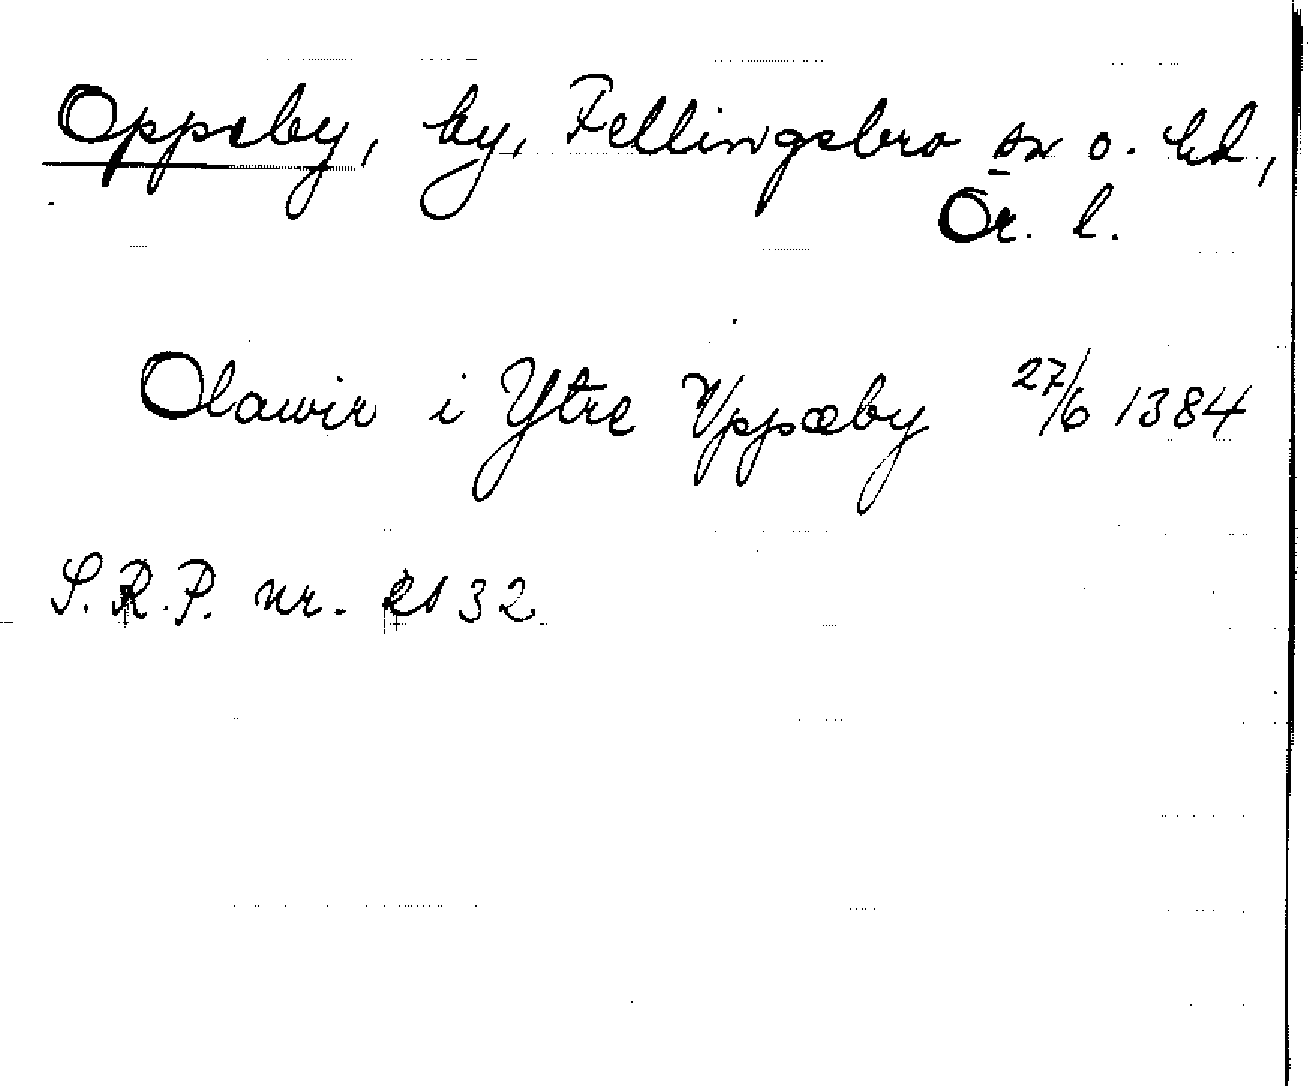 Oppeby, by, Fellingsbro sn o. hd,
Ör. l.
Olawir i Ytre Vppæby 27/6 1384
S.R.P. nr. 2132